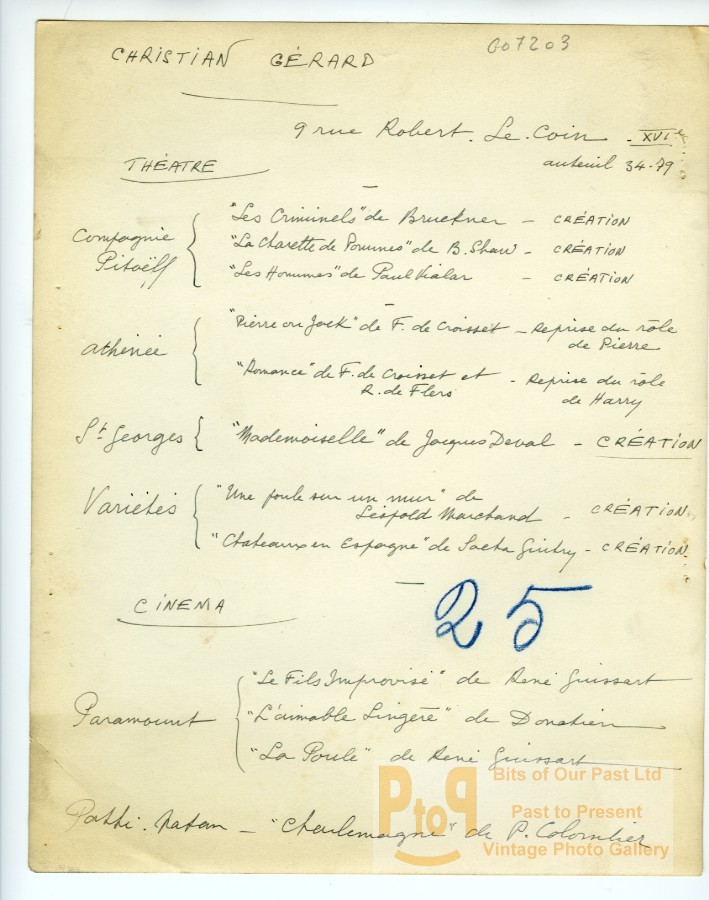 CHRISTIAN GÉRARD
007203
9 rue Robert. Le. Coin - XVIe
auteuil 34-79
THÉATRE
Compagnie Pitoëff
"Les Criminels" de Bruckner - CRÉATION
"La Charette de Pommes" de B. Shaw - CRÉATION
"Les Hommes" de Paul Vialar - CRÉATION
athénée
"Pierre ou Jack" de F. de Croisset - Reprise du rôle
de Pierre
"Romance" de F. de Croisset et - Reprise du rôle
R. de Flers de Harry
St Georges
"Mademoiselle" de Jacques Deval - CRÉATION
Variétés
"Une poule sur un mur" de
Léopold Marchand - CRÉATION
"Chateaux en Espagne" de Sacha Guitry - CRÉATION
CINEMA
25
Paramount
"Le Fils Improvisé" de René Guissart
"L'aimable Lingère" de Donatien
"La Poule" de René Guissart
Pathé. Natan - "Charlemagne" de P. Colombier
PtoP
Bits of Our Past Ltd
Past to Present
Vintage Photo Gallery